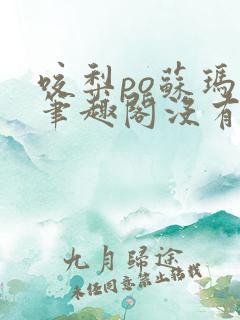 咬梨po蘇瑪
筆趣閣沒有
九月歸途
未經同意禁止轉載